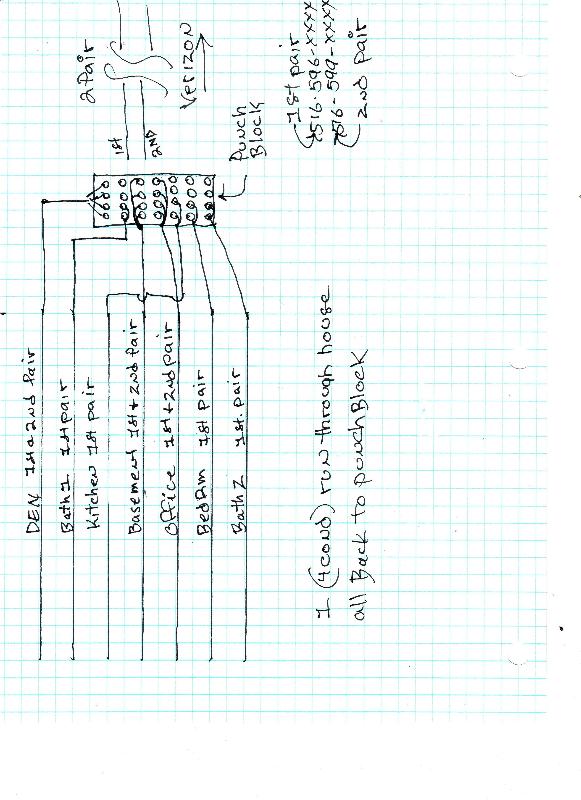 DEN 1st & 2nd Pair
Bath 1 1st pair
Kitchen 1st pair
Basement 1st + 2nd Pair
Office 1st + 2nd pair
BedRm 1st pair
Bath 2 1st. pair
2 Pair
1st
2ND
Verizon
Punch
Block
1st pair
516-596-xxxx
516-599-xxxx
2nd pair
1 (4cond) run through house
all Back to punchBlock